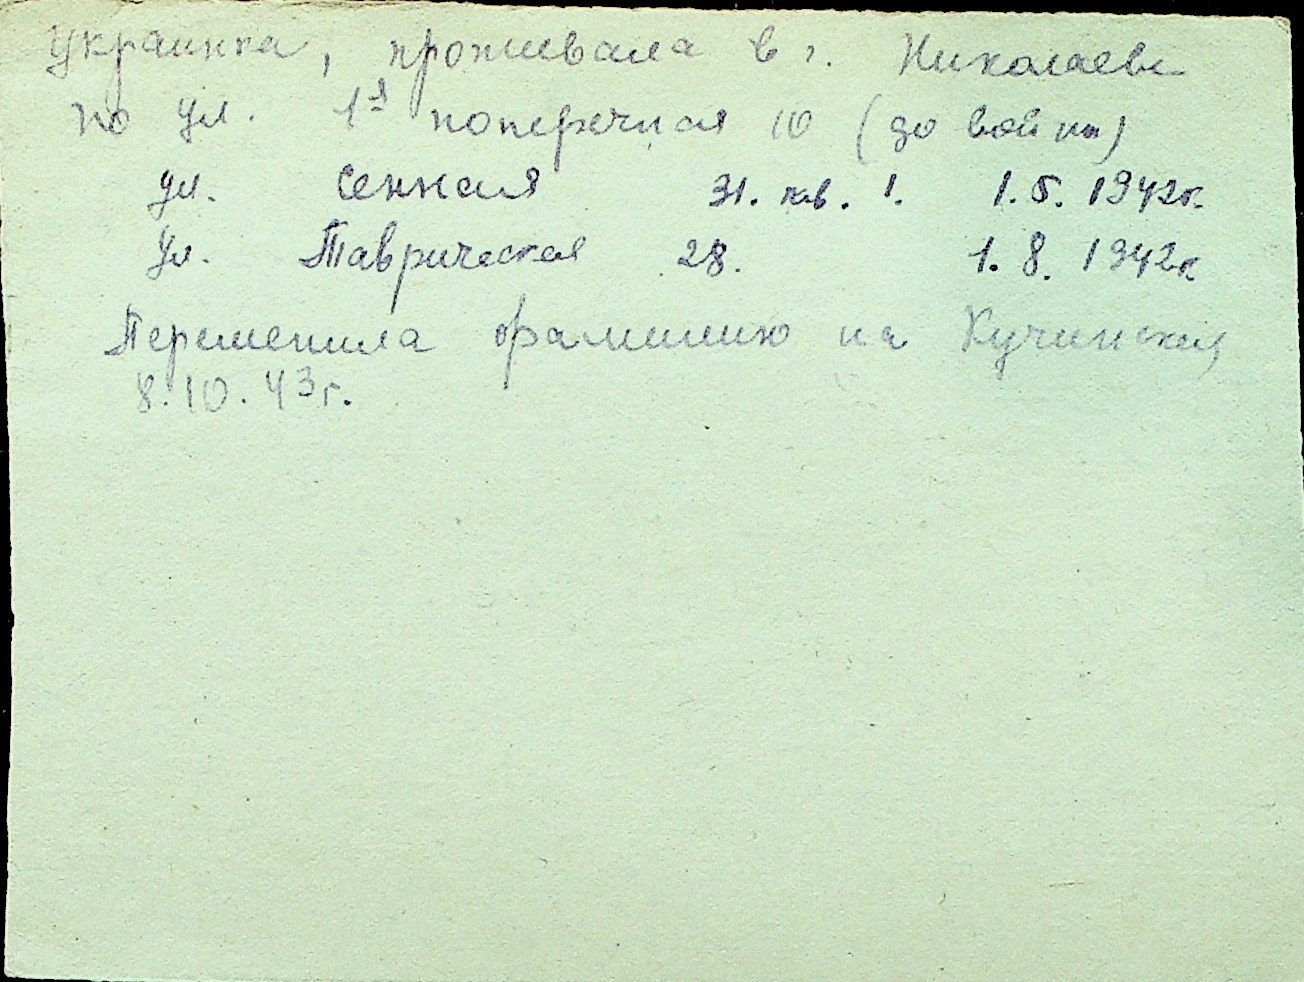 Украинка, проживала в г. Николаеве
по ул. 1я поперечная 10 (до войны)
ул. Сенная 31. кв. 1. 1.5.1942г.
ул. Таврическая 28. 1.8.1942г
Переменила фамилию на Кучинская
8.10.43г.